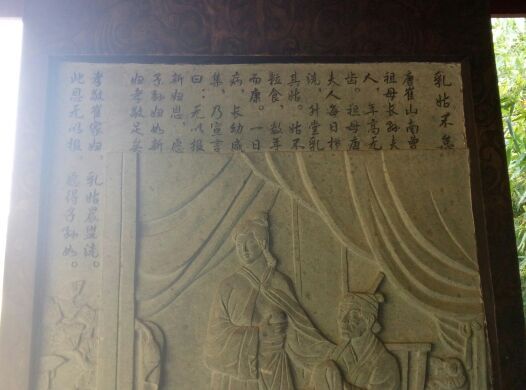 乳姑不怠
唐崔山南曾
祖母长孙夫
人,年高无
齿。祖母唐
夫人每日栉
洗,升堂乳
其姑。姑不
粒食,数年
而康。一日
病,长幼咸
集,乃宣言
曰:无以报
新妇恩,愿
子孙妇如新
妇孝敬足矣
孝敬崔家妇,乳姑晨盥洗。
此恩无以报,愿得子孙如。